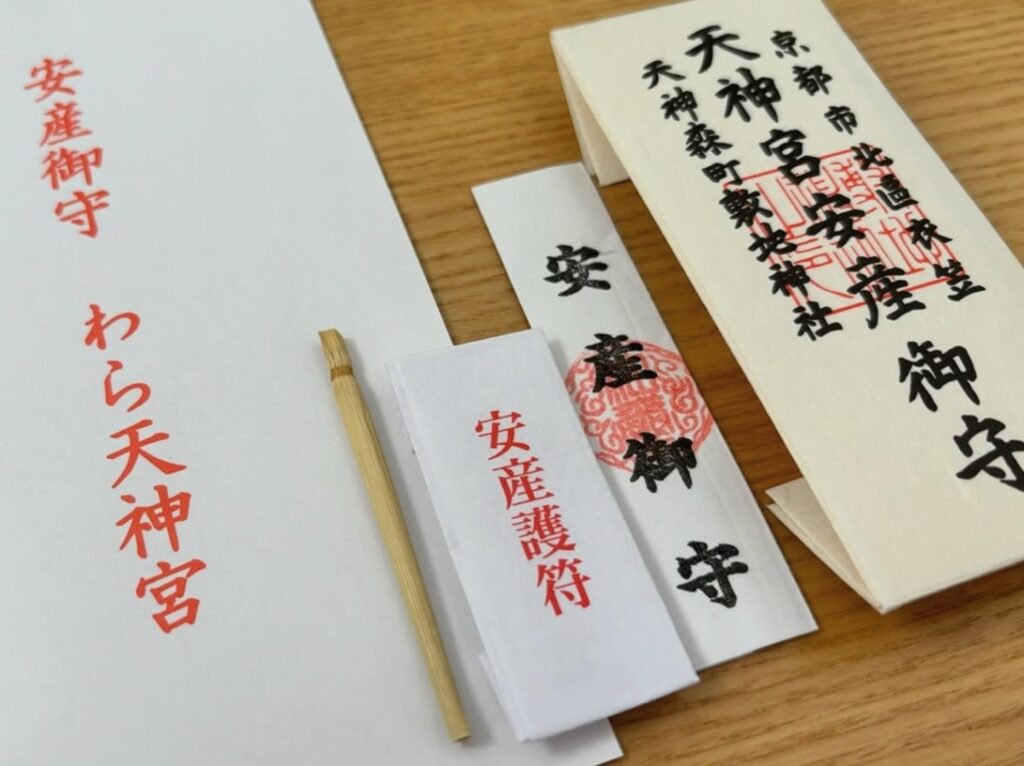 安産御守
わら天神宮
安産護符
安産御守
京都市北區衣笠
天神宮安産御守
天神森町敷地神社